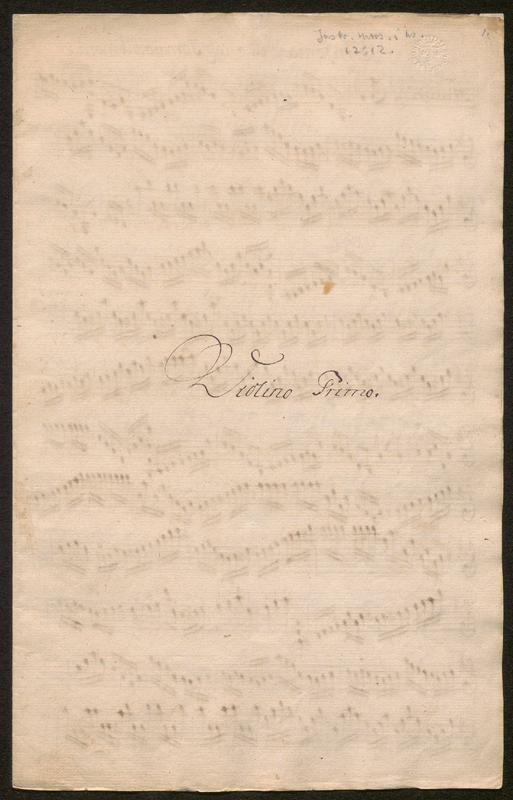 Instr. mus. i hs.
12:12.
1.
Violino Primo.